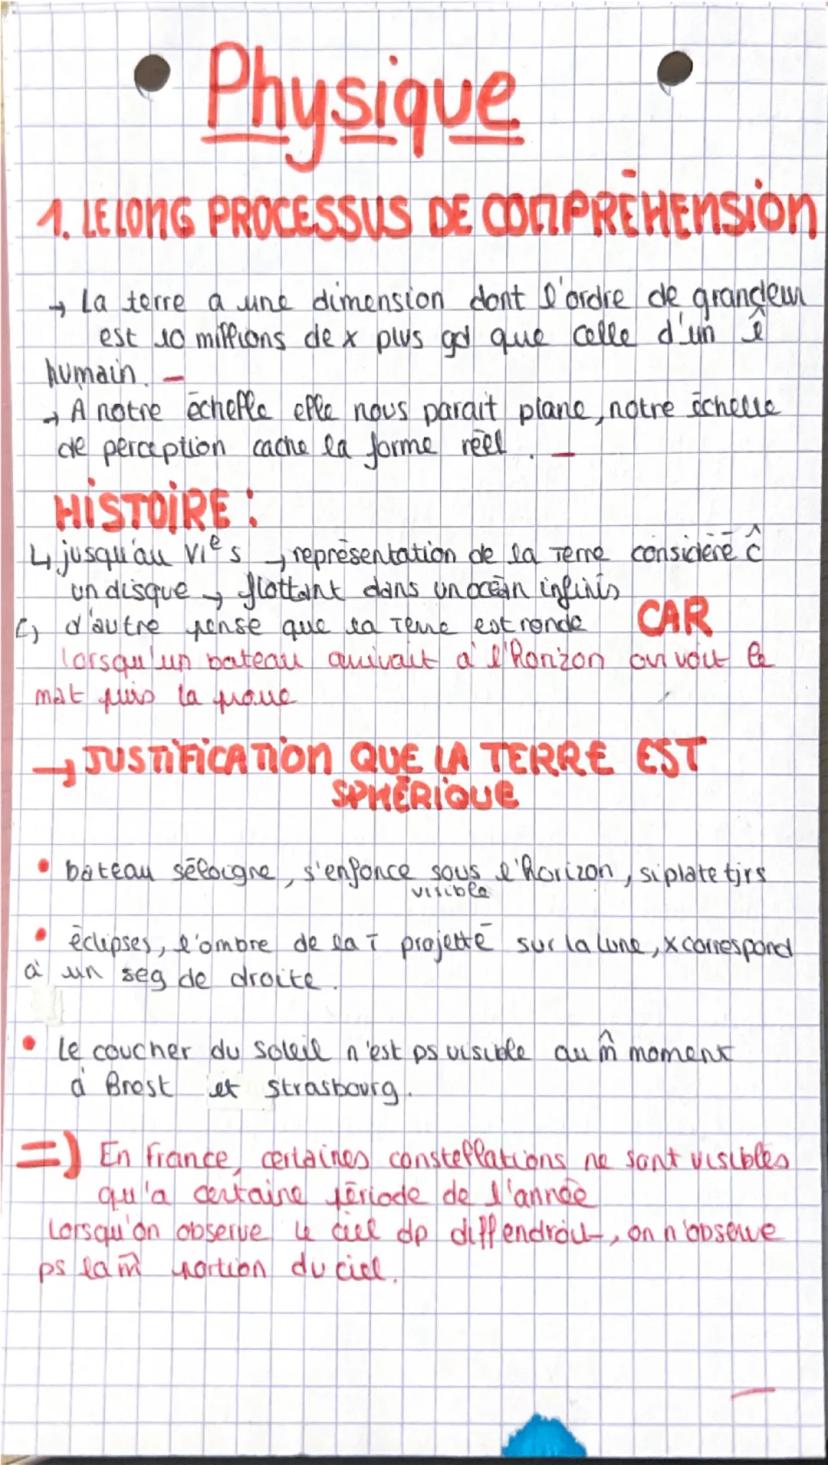 Physique
1. LE LONG PROCESSUS DE COMPRÉHENSION
→ La terre a une dimension dont l'ordre de grandeur
est 10 millions de x plus gd que celle d'un ê
humain.
→ A notre échelle elle nous parait plane, notre échelle
de perception cache la forme réel.
HISTOIRE :
↳ jusqu'au VIe s → représentation de la Terre considéré ĉ
un disque → flottant dans un océan infinis
↳ d'autre pense que la Terre est ronde CAR
lorsqu'un bateau arrivait à l'Horizon on voit le
mat puis la proue
→ JUSTIFICATION QUE LA TERRE EST
SPHÉRIQUE
• bateau séloigne, s'enfonce sous l'horizon, si plate tjrs
visible
• éclipses, l'ombre de la T projetté sur la lune, x correspond
à un seg de droite.
• Le coucher du soleil n'est ps visible au m̂ moment
à Brest et Strasbourg.
=) En France, certaines constellations ne sont visibles
qu'a certaine période de l'année
Lorsqu'on observe le ciel dp diff endroit, on n'observe
ps la m̂ portion du ciel.